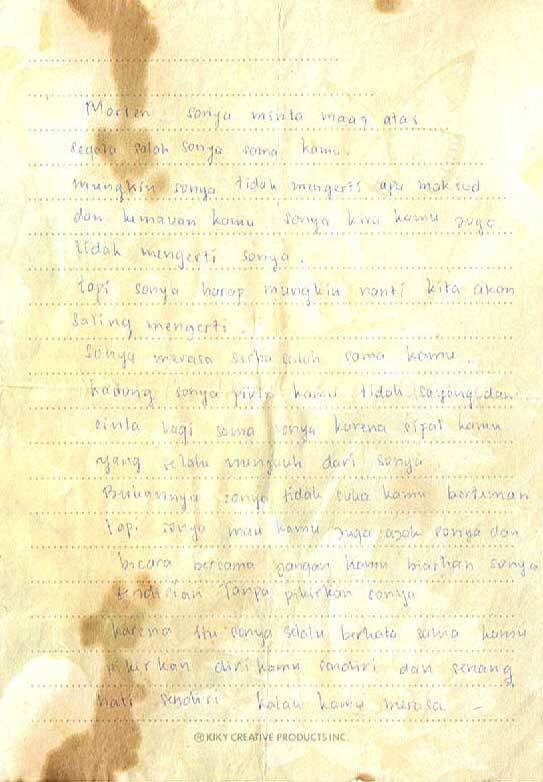 Morten sonya minta maaf atas
segala salah sonya sama kamu.
mungkin sonya tidak mengerti apa maksud
dan kemauan kamu, sonya kira kamu juga
tidak mengerti sonya.
tapi sonya harap mungkin nanti kita akan
saling mengerti.
Sonya merasa serba salah sama kamu.
kadang sonya pikir kamu tidak sayang dan
cinta lagi sama sonya karena sifat kamu
yang selalu menjauh dari sonya
Bukannya sonya tidak suka kamu berteman
tapi sonya mau kamu juga ajak sonya dan
bicara bersama jangan kamu biarkan sonya
sendirian Tanpa pikirkan sonya
karena itu sonya selalu berkata sama kamu
pikirkan diri kamu sendiri dan senang
hati sendiri kalau kamu merasa –
® KIKY CREATIVE PRODUCTS INC.